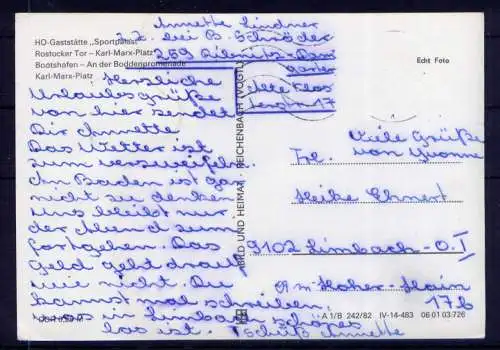 Annette Lindner
z. Z. bei B. Schröder
259 Ribnitz-Dam
garten
Alte Klos
terstr. 17
HO-Gaststätte „Sportpalast"
Rostocker Tor – Karl-Marx-Platz
Bootshafen – An der Boddenpromenade
Karl-Marx-Platz
Echt Foto
Herzliche
Urlaubsgrüße
von hier sendet
Dir Annette
Das Wetter ist
zum verzweifeln.
An Baden ist gar
nicht zu denken
Uns bleibt nur
der Abend zum
fortgehen. Das
Geld geht drauf
wie nicht. Du
kannst mal schreiben,
was in Limbach schönes
los ist. Tschüß Annette
BILD UND HEIMAT REICHENBACH (VOGTL)
Viele Grüße
von Yvonne
Frl.
Heike Ehnert
9102 Limbach-O. I
Am Hoher-Hain
17b
A 1/B 242/82 IV-14-483 06 01 03 726